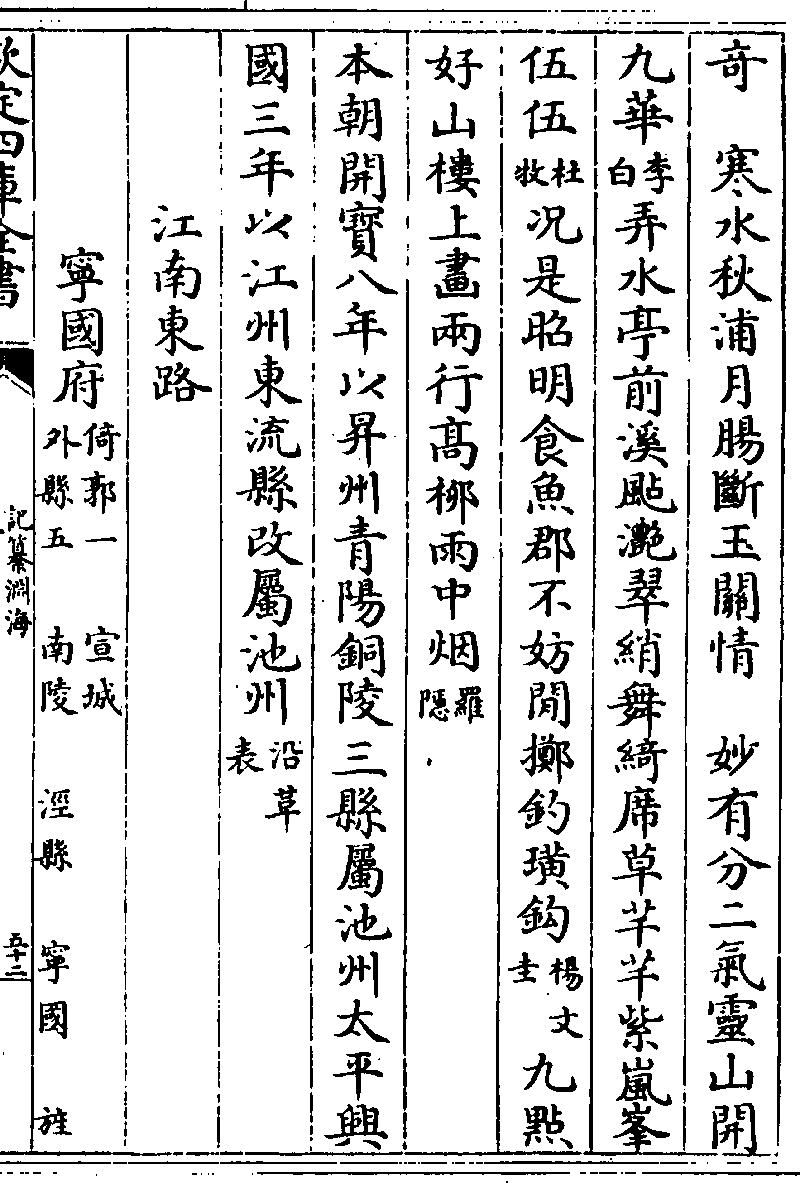 奇　寒水秋浦月腸斷玉關情　妙有分二氣靈山開
九華李白弄水亭前溪颭灔翠綃舞綺席草芊芊紫嵐峯
伍伍杜牧况是昭明食魚郡不妨閒擲釣璜鈎楊文圭九點
好山樓上畫兩行髙栁雨中烟羅隱
本朝開寶八年以昇州青陽銅陵三縣屬池州太平興
國三年以江州東流縣改屬池州沿革表
江南東路
寧國府倚郭一　宣城
外縣五　南陵　涇縣　寧國　旌
欽定四庫全書
記纂淵海
五十二